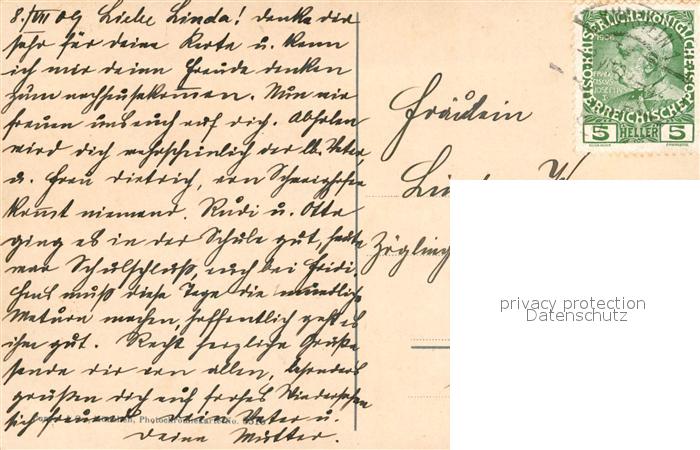 8./VII 09 Liebe Linda! Danke dir
sehr für deine Karte u. kann
ich mir deine Freude denken
zum nachhausekommen. Nun wir
freuen uns auch auf dich. Abholen
wird dich wahrscheinlich der lb. Vater
u. Frau Dietrich, von
kommt niemand. Rudi u. Otto
ging es in der Schule gut, heute
war Schulschluß, auch bei Fridi.
muß diese Tage die mündliche
Matura machen, hoffentlich geht es
ihm gut. Recht herzliche Grüße
sende dir von allen, besonders
grüßen dich auf frohes Wiedersehen
sich freuend dein Vater u.
Deine Mutter.
Photochromiekarte No.
Fräulein
Zögling
1908
5 HELLER 5
privacy protection
Datenschutz